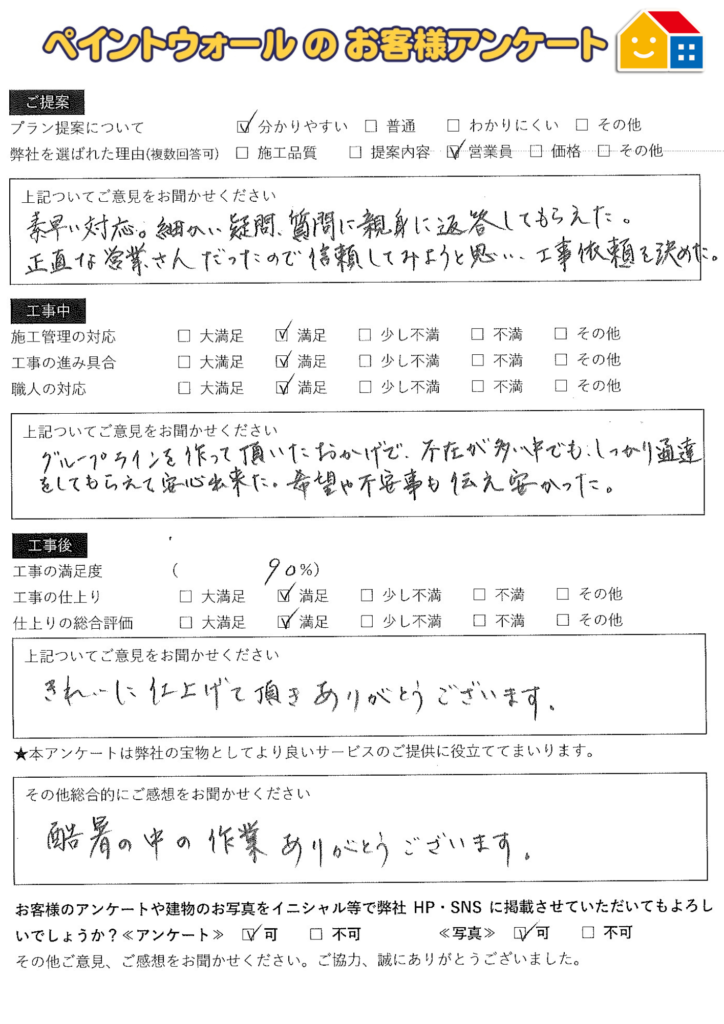 ペイントウォール の お客様アンケート
ご提案
プラン提案について ☑ 分かりやすい □ 普通 □ わかりにくい □ その他
弊社を選ばれた理由(複数回答可) □ 施工品質 □ 提案内容 ☑ 営業員 □ 価格 □ その他
上記ついてご意見をお聞かせください
素早い対応。細かい疑問、質問に親身に返答してもらえた。
正直な営業さんだったので信頼してみようと思い、工事依頼を決めた。
工事中
施工管理の対応 □ 大満足 ☑ 満足 □ 少し不満 □ 不満 □ その他
工事の進み具合 □ 大満足 ☑ 満足 □ 少し不満 □ 不満 □ その他
職人の対応 □ 大満足 ☑ 満足 □ 少し不満 □ 不満 □ その他
上記ついてご意見をお聞かせください
グループラインを作って頂いたおかげで、不在が多い中でも、しっかり通達
をしてもらえて安心出来た。希望や不安事も伝え安かった。
工事後
工事の満足度 ( 90%)
工事の仕上り □ 大満足 ☑ 満足 □ 少し不満 □ 不満 □ その他
仕上りの総合評価 □ 大満足 ☑ 満足 □ 少し不満 □ 不満 □ その他
上記ついてご意見をお聞かせください
きれいに仕上げて頂きありがとうございます。
★本アンケートは弊社の宝物としてより良いサービスのご提供に役立ててまいります。
その他総合的にご感想をお聞かせください
酷暑の中の作業ありがとうございます。
お客様のアンケートや建物のお写真をイニシャル等で弊社 HP・SNS に掲載させていただいてもよろし
いでしょうか？≪アンケート≫ ☑ 可 □ 不可 ≪写真≫ ☑ 可 □ 不可
その他ご意見、ご感想をお聞かせください。ご協力、誠にありがとうございました。